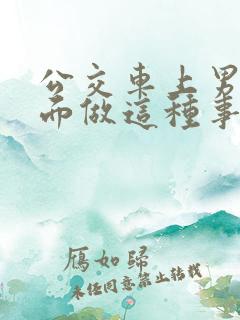 公交車上男
而做這種事
雁如歸
未經同意禁止轉載